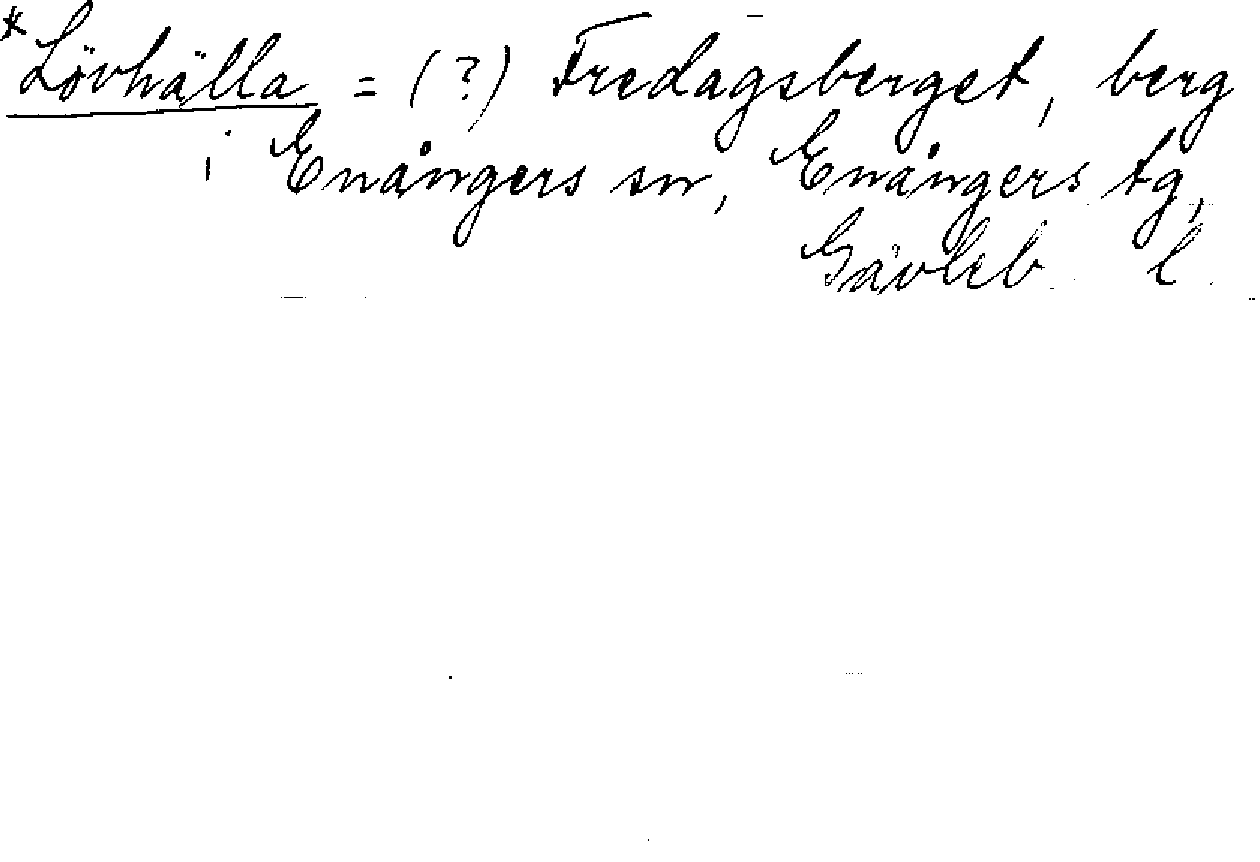 *Lövhälla = (?) Fredagsberget, berg
i Enångers sn, Enångers tg,
Gävleb. l.